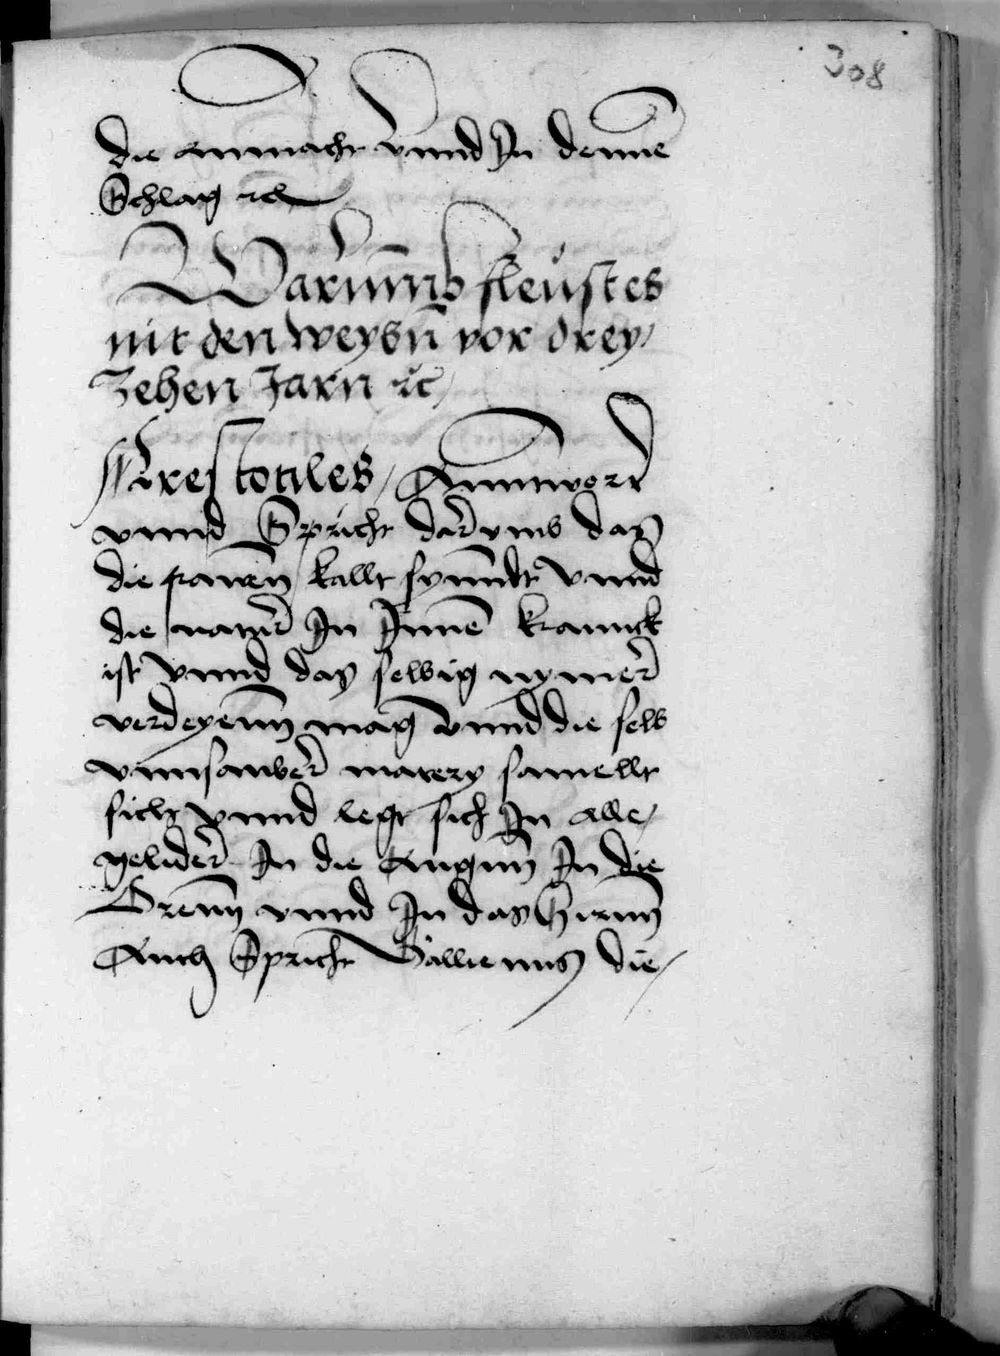 308
die anmacht vnnd Jn dennē
Schlag ꝛc
Warumb fleust es
nit den weybn̄ vor drey
zehen Jarn ꝛc
Arestotiles / Anntwort
vnnd Spricht darvmb das
die frawen kallt synndt vnnd
die natur Jn Jnnē kranck
ist vnnd das selbig nymer
verdeyenn mag vnnd die selb
vnnsawber matery samellt
sich vnnd legt sich Jn alle
gelider Jn die Augnn̄ Jn die
Orenn vnnd Jn das hirnn̄
Auch Spricht Gallienus die